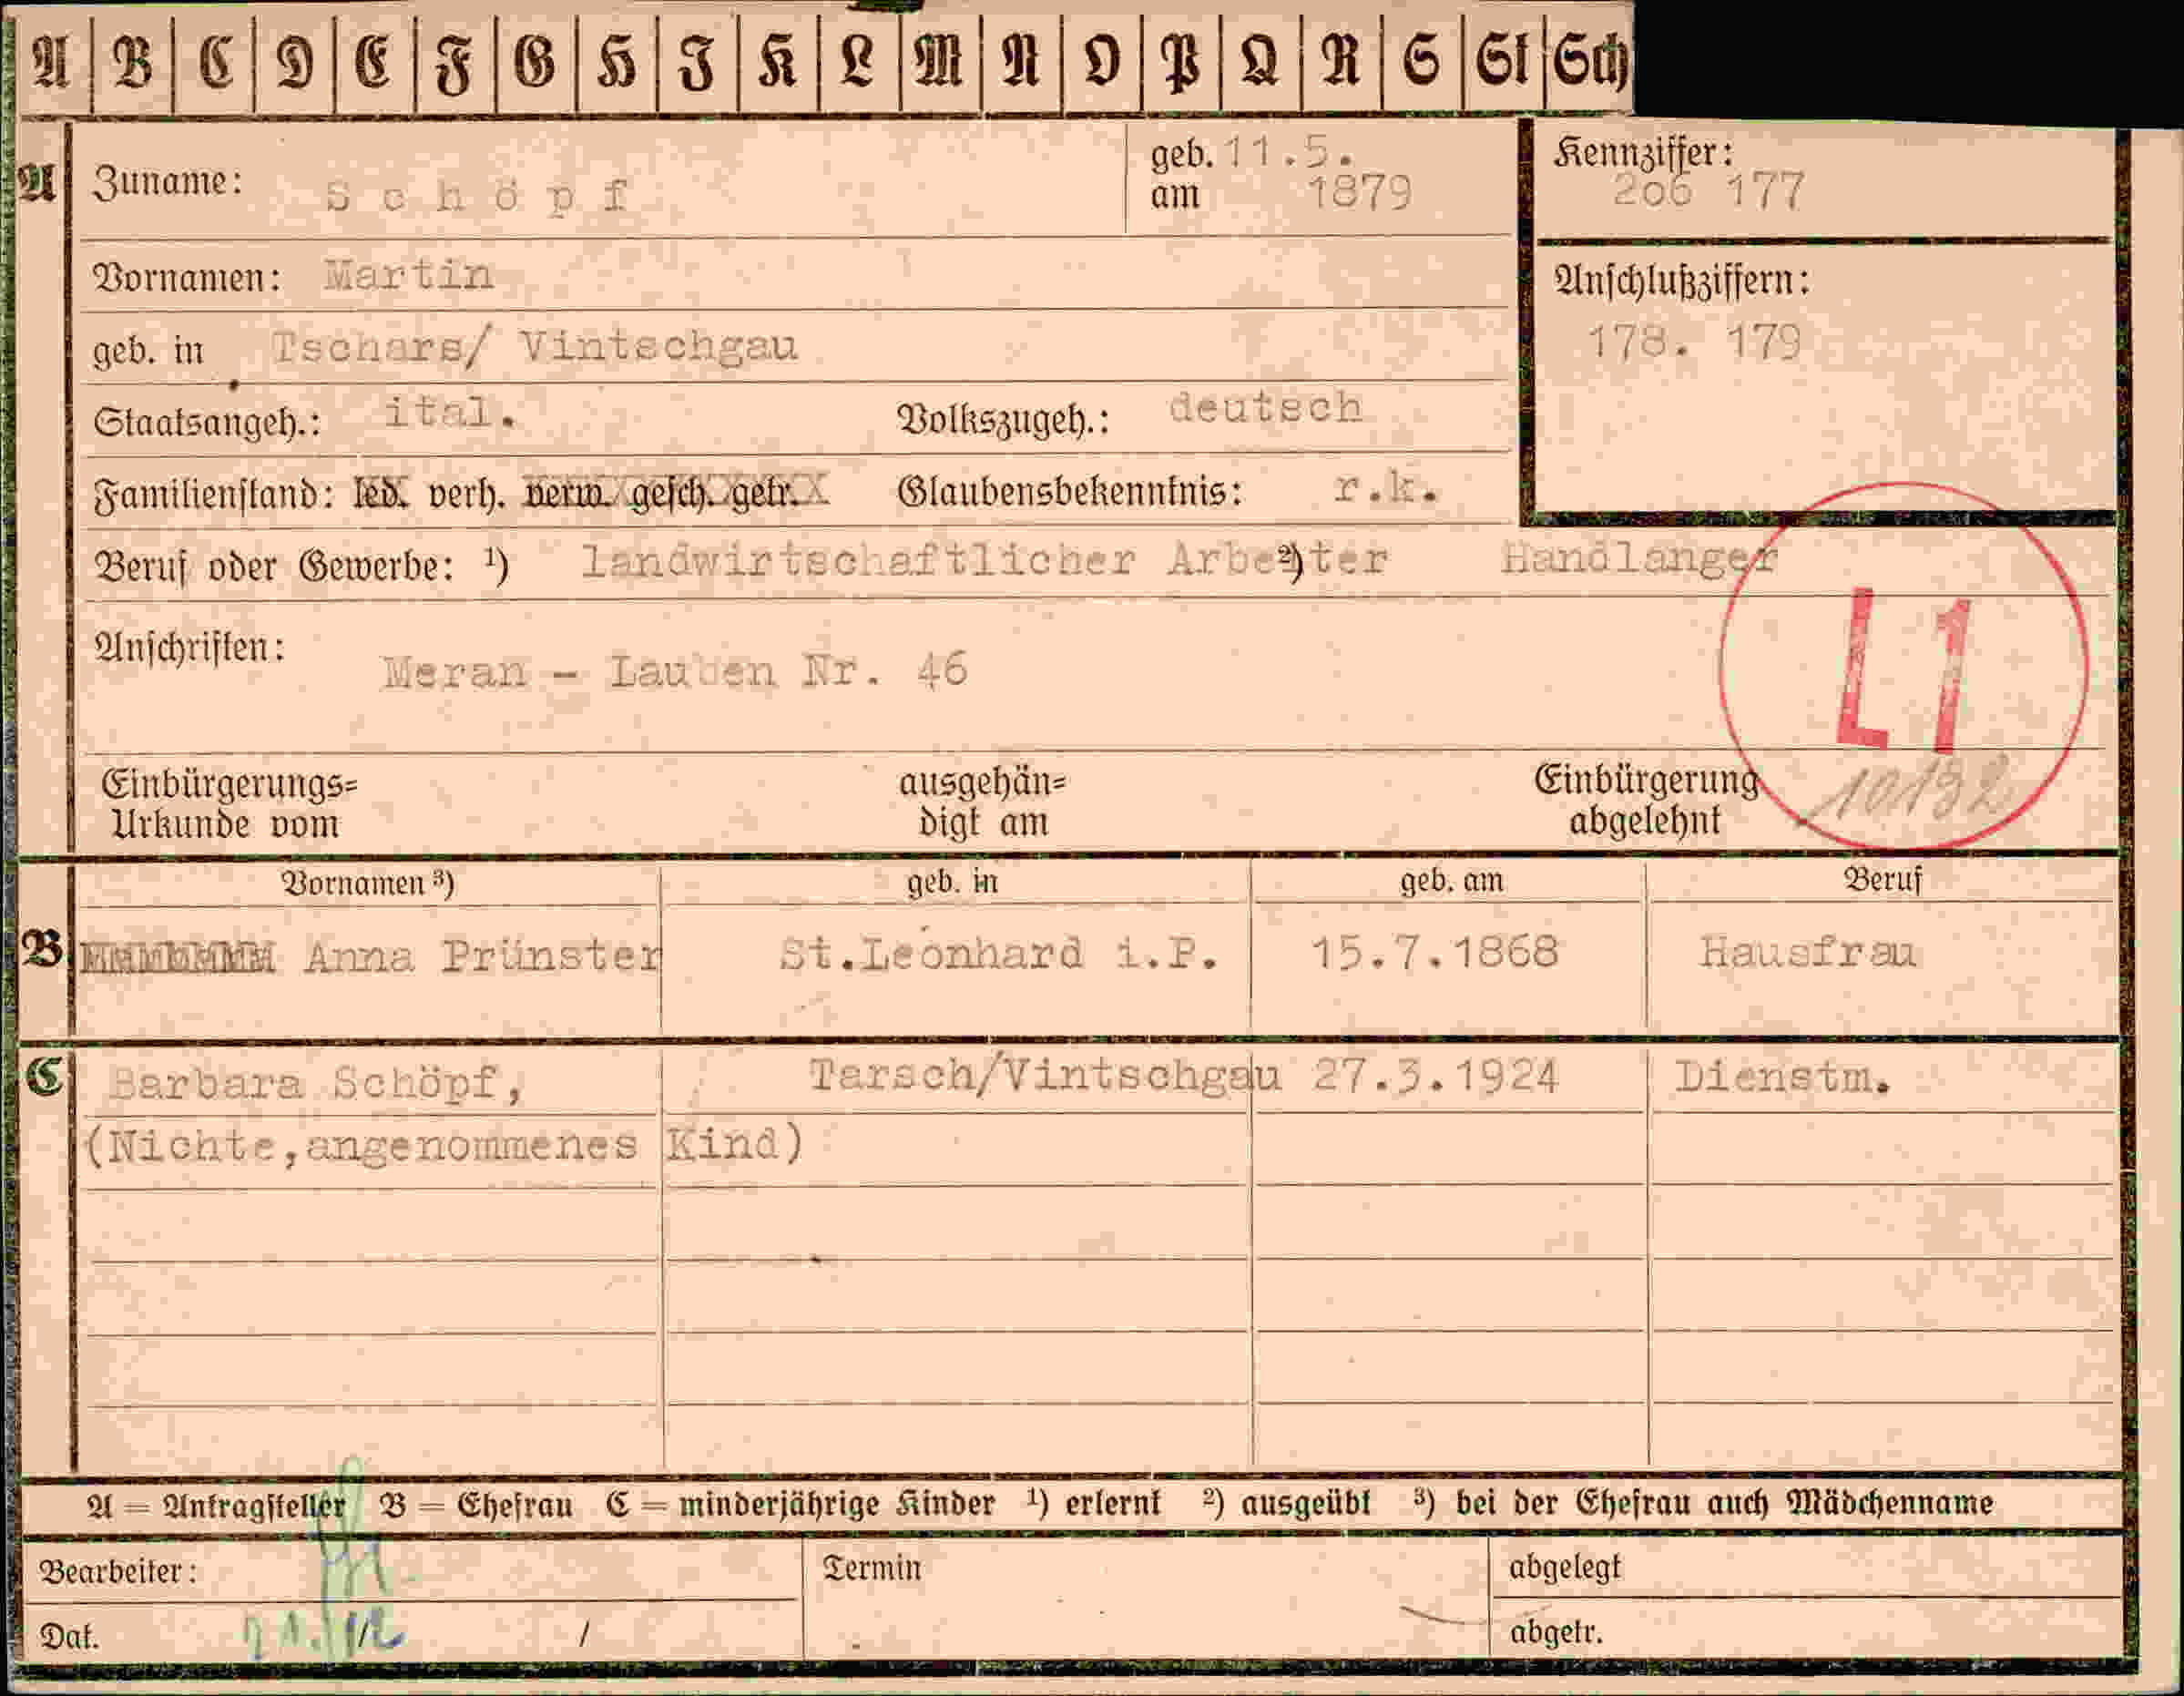 A B C D E F G H I K L M N O P Q R S St Sch
A Zuname: Schöpf geb. am 11.5. 1879 Kennziffer: 2o6 177
Vornamen: Martin Anschlußziffern:
geb. in Tschars/ Vintschgau 178. 179
Staatsangeh.: ital. Volkszugeh.: deutsch
Familienstand: led. verh. verw. gesch. getr. Glaubensbekenntnis: r.k.
Beruf oder Gewerbe: ¹) landwirtschaftlicher Arbeiter ²) Handlanger
Anschriften: Meran - Lauben Nr. 46
L1
Einbürgerungs= ausgehän= Einbürgerung
Urkunde vom digt am abgelehnt
Vornamen ³) geb. in geb. am Beruf
B Anna Prünster St.Leonhard i.P. 15.7.1868 Hausfrau
C Barbara Schöpf, Tarsch/Vintschgau 27.3.1924 Dienstm.
(Nichte,angenommenes Kind)
A = Antragsteller B = Ehefrau C = minderjährige Kinder ¹) erlernt ²) ausgeübt ³) bei der Ehefrau auch Mädchenname
Bearbeiter: Termin abgelegt
Dat. / abgetr.